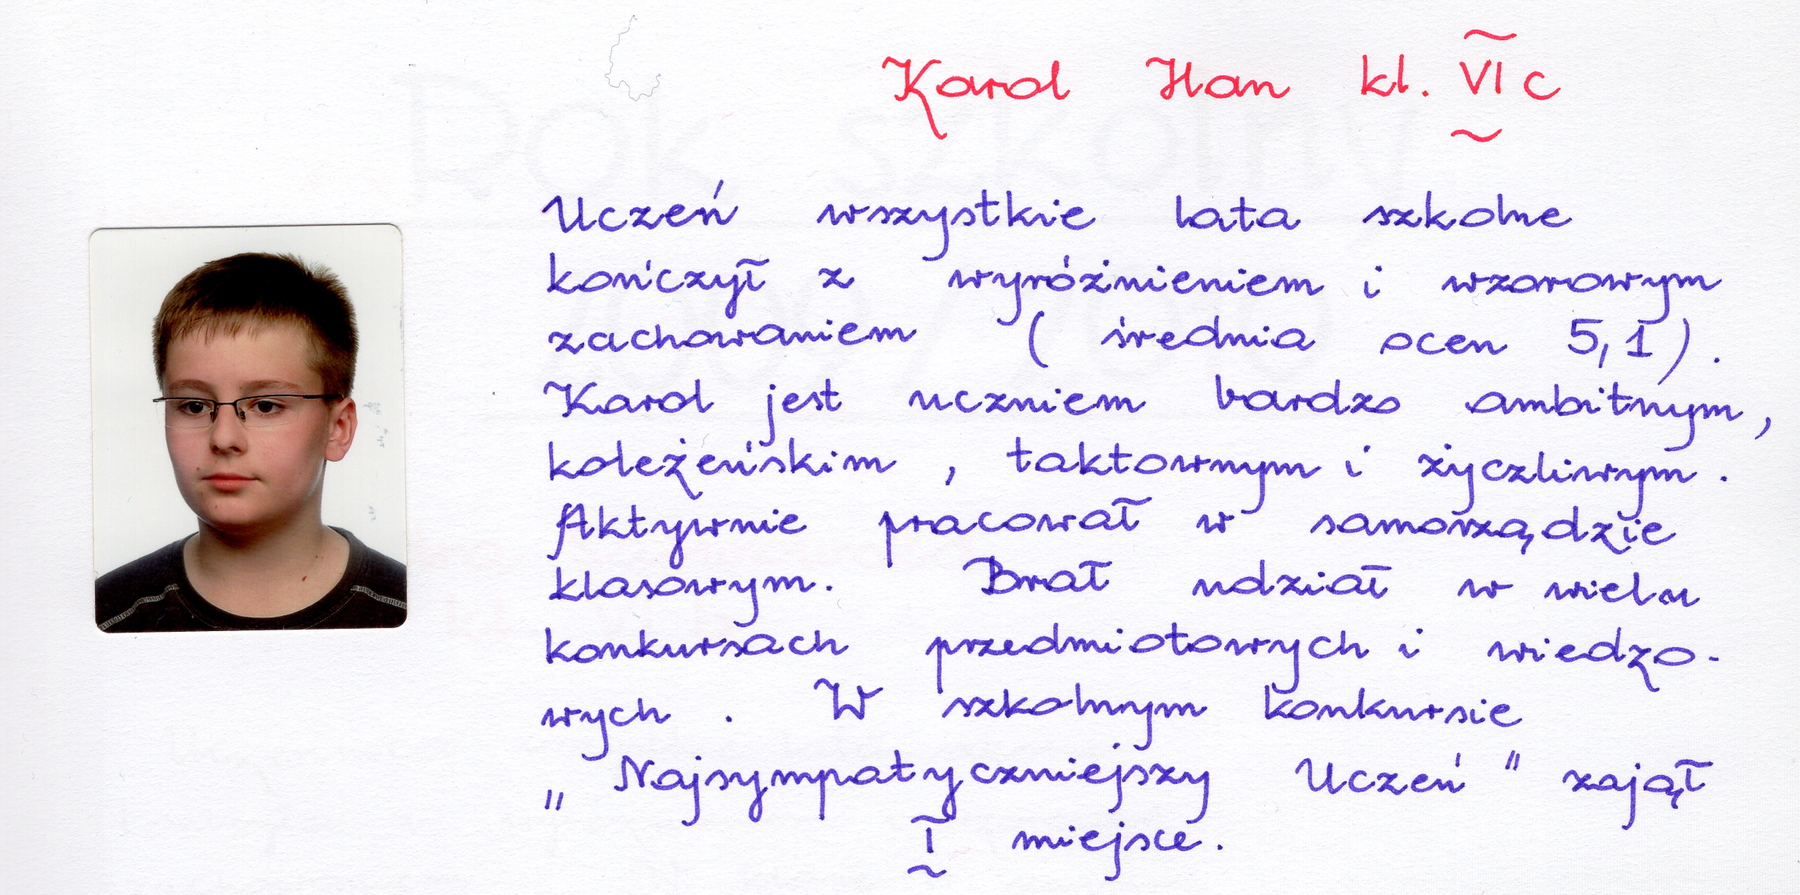 Karol Han kl. VI c
Uczeń wszystkie lata szkolne
kończył z wyróżnieniem i wzorowym
zachowaniem ( średnia ocen 5,1 ).
Karol jest uczniem bardzo ambitnym,
koleżeńskim , taktownym i życzliwym.
Aktywnie pracował w samorządzie
klasowym. Brał udział w wielu
konkursach przedmiotowych i wiedzo-
wych . W szkolnym konkursie
„ Najsympatyczniejszy Uczeń " zajął
I miejsce.